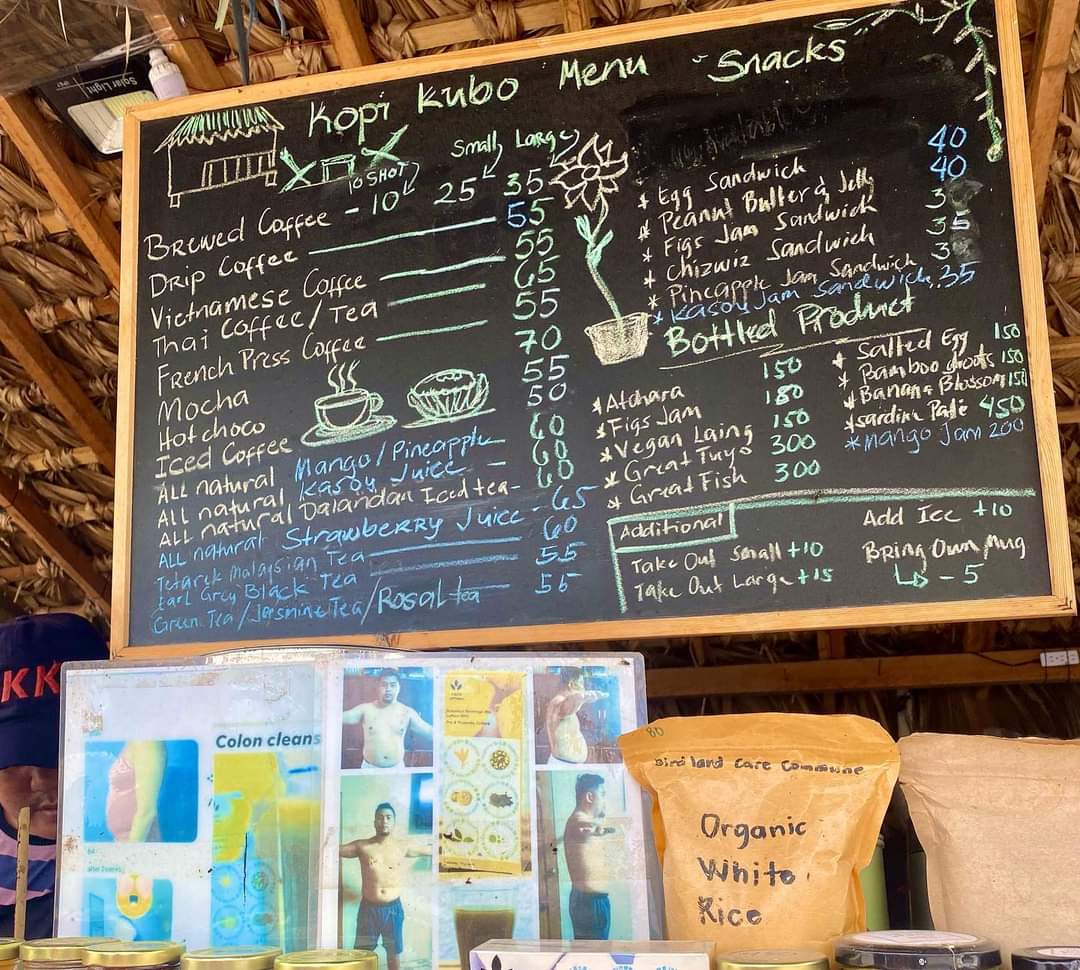 Solar Light
Kopi Kubo Menu
Small Large
SHOT
Brewed Coffee - 10 25 35
Drip Coffee 55
Vietnamese Coffee 55
Thai Coffee/Tea 65
French Press Coffee 55
Mocha 70
Hot choco 55
Iced Coffee 50
ALL natural Mango/Pineapple 60
ALL natural Kasoy Juice - 60
ALL natural Dalandan Iced tea - 60
ALL natural Strawberry Juice - 65
Tetarek Malaysian Tea 60
Earl Grey Black Tea 55
Green Tea/Jasmine Tea/Rosal tea 55
Snacks
* Egg Sandwich 40
* Peanut Butter & Jelly 40
* Figs Jam Sandwich 3
* Chizwiz Sandwich 35
* Pineapple Jam Sandwich 3
* Kasoy Jam Sandwich 35
Bottled Product
* Atchara 150
* Figs Jam 180
* Vegan Laing 150
* Great Tuyo 300
* Great Fish 300
* Salted Egg 150
* Bamboo Shoots 150
* Banana Blossom 150
* sardine Pate 450
* Mango Jam 200
Additional
Take Out Small +10
Take Out Large +15
Add Ice +10
Bring Own Mug
- 5
KK
Colon cleans
80
Bird land Care Commune
Organic
White
Rice